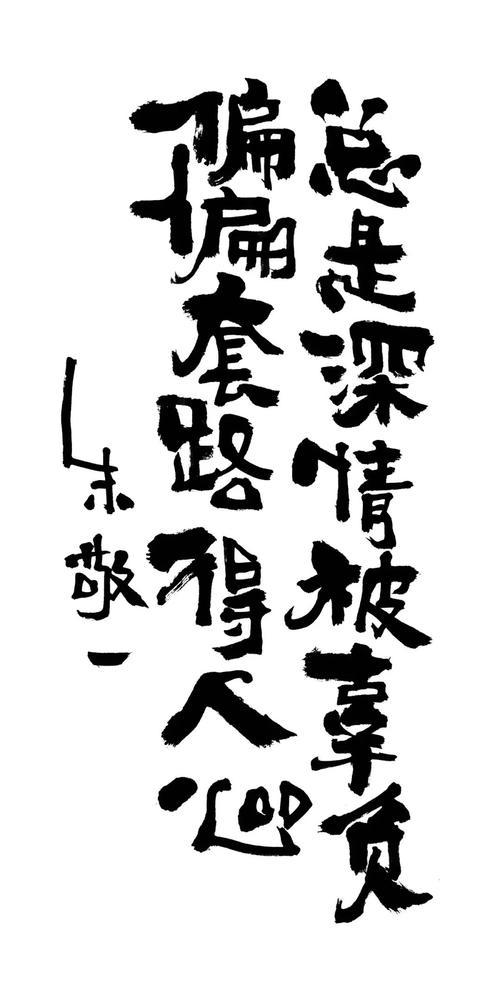 总是深情被辜负
偏偏套路得人心
朱敬一